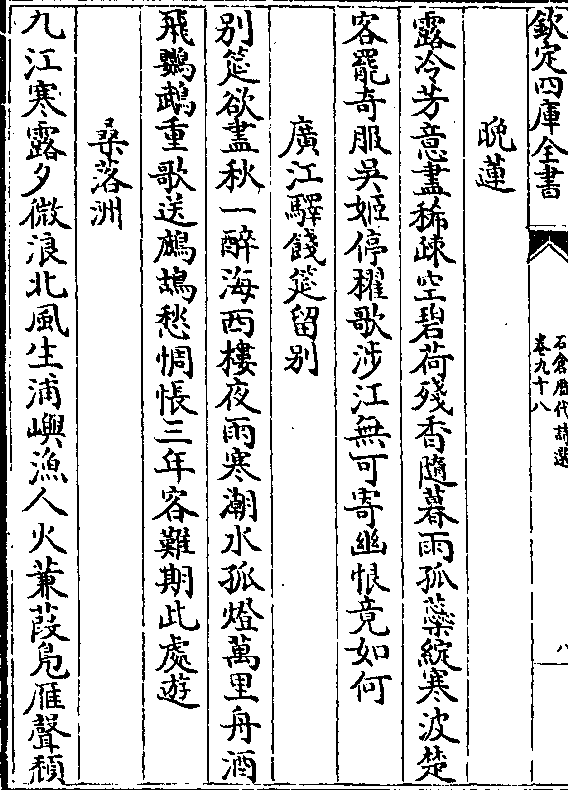 欽定四庫全書
石倉歷代詩選
卷九十八
八
晚蓮
露冷芳意盡稀疎空碧荷殘香隨暮雨孤蘂綻寒波楚
客罷奇服吳姬停櫂歌涉江無可寄幽恨竟如何
廣江驛餞筵留别
别筵欲盡秋一醉海西樓夜雨寒潮水孤燈萬里舟酒
飛鸚鵡重歌送鷓鴣愁惆悵三年客難期此處遊
桑落洲
九江寒露夕微浪北風生浦嶼漁人火蒹葭鳬雁聲頽